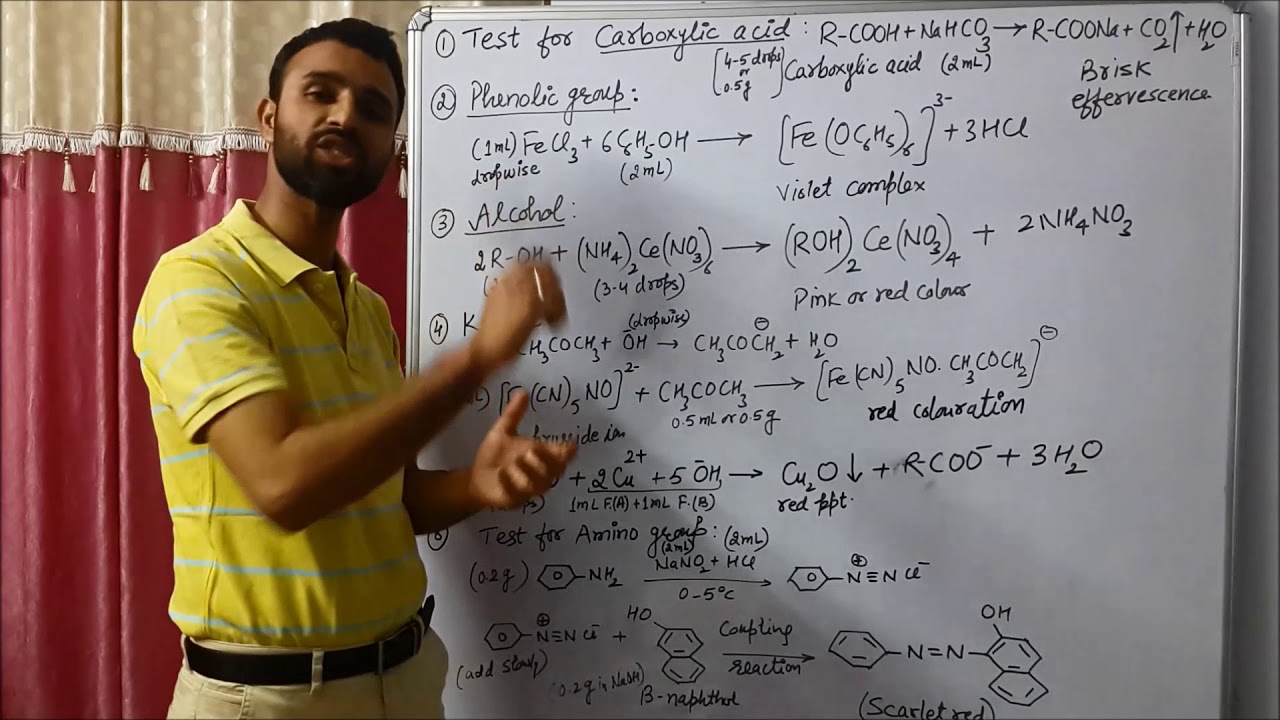 ① Test for Carboxylic acid : R-COOH + NaHCO₃ → R-COONa + CO₂↑ + H₂O
[4-5 drops or 0.5g] Carboxylic acid (2mL) Brisk effervescence
② Phenolic group :
(1mL) FeCl₃ + 6C₆H₅OH → [Fe(OC₆H₅)₆]³⁻ + 3HCl
dropwise (2mL) Violet complex
③ Alcohol :
2R-OH + (NH₄)₂Ce(NO₃)₆ → (ROH)₂Ce(NO₃)₄ + 2NH₄NO₃
(3-4 drops) Pink or red colour
④ K
(dropwise)
CH₃COCH₃ + ŌH → CH₃COCH₂⊖ + H₂O
[Fe(CN)₅NO]²⁻ + CH₃COCH₃ → [Fe(CN)₅NO.CH₃COCH₂]⊖
0.5mL or 0.5g red colouration
+ 2Cu²⁺ + 5ŌH → Cu₂O↓ + R-COO⁻ + 3H₂O
1mL F.(A) + 1mL F.(B) red ppt.
Test for Amino group : (2mL)
(2mL)
(0.2g) -NH₂ NaNO₂ + HCl -N⊕≡N Cl⁻
0-5°C
-N⊕≡N Cl⁻ + HO Coupling reaction -N=N- OH
(add slowly) (0.2g in NaOH) β-naphthol (Scarlet red)